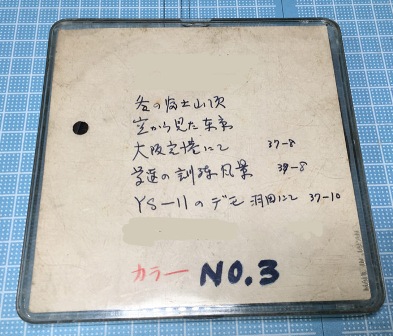 冬の富士山頂
空から見た東京
大阪空港にて 37-8
学連の訓練風景 39-8
YS-11のデモ 羽田にて 37-10
カラー NO.3